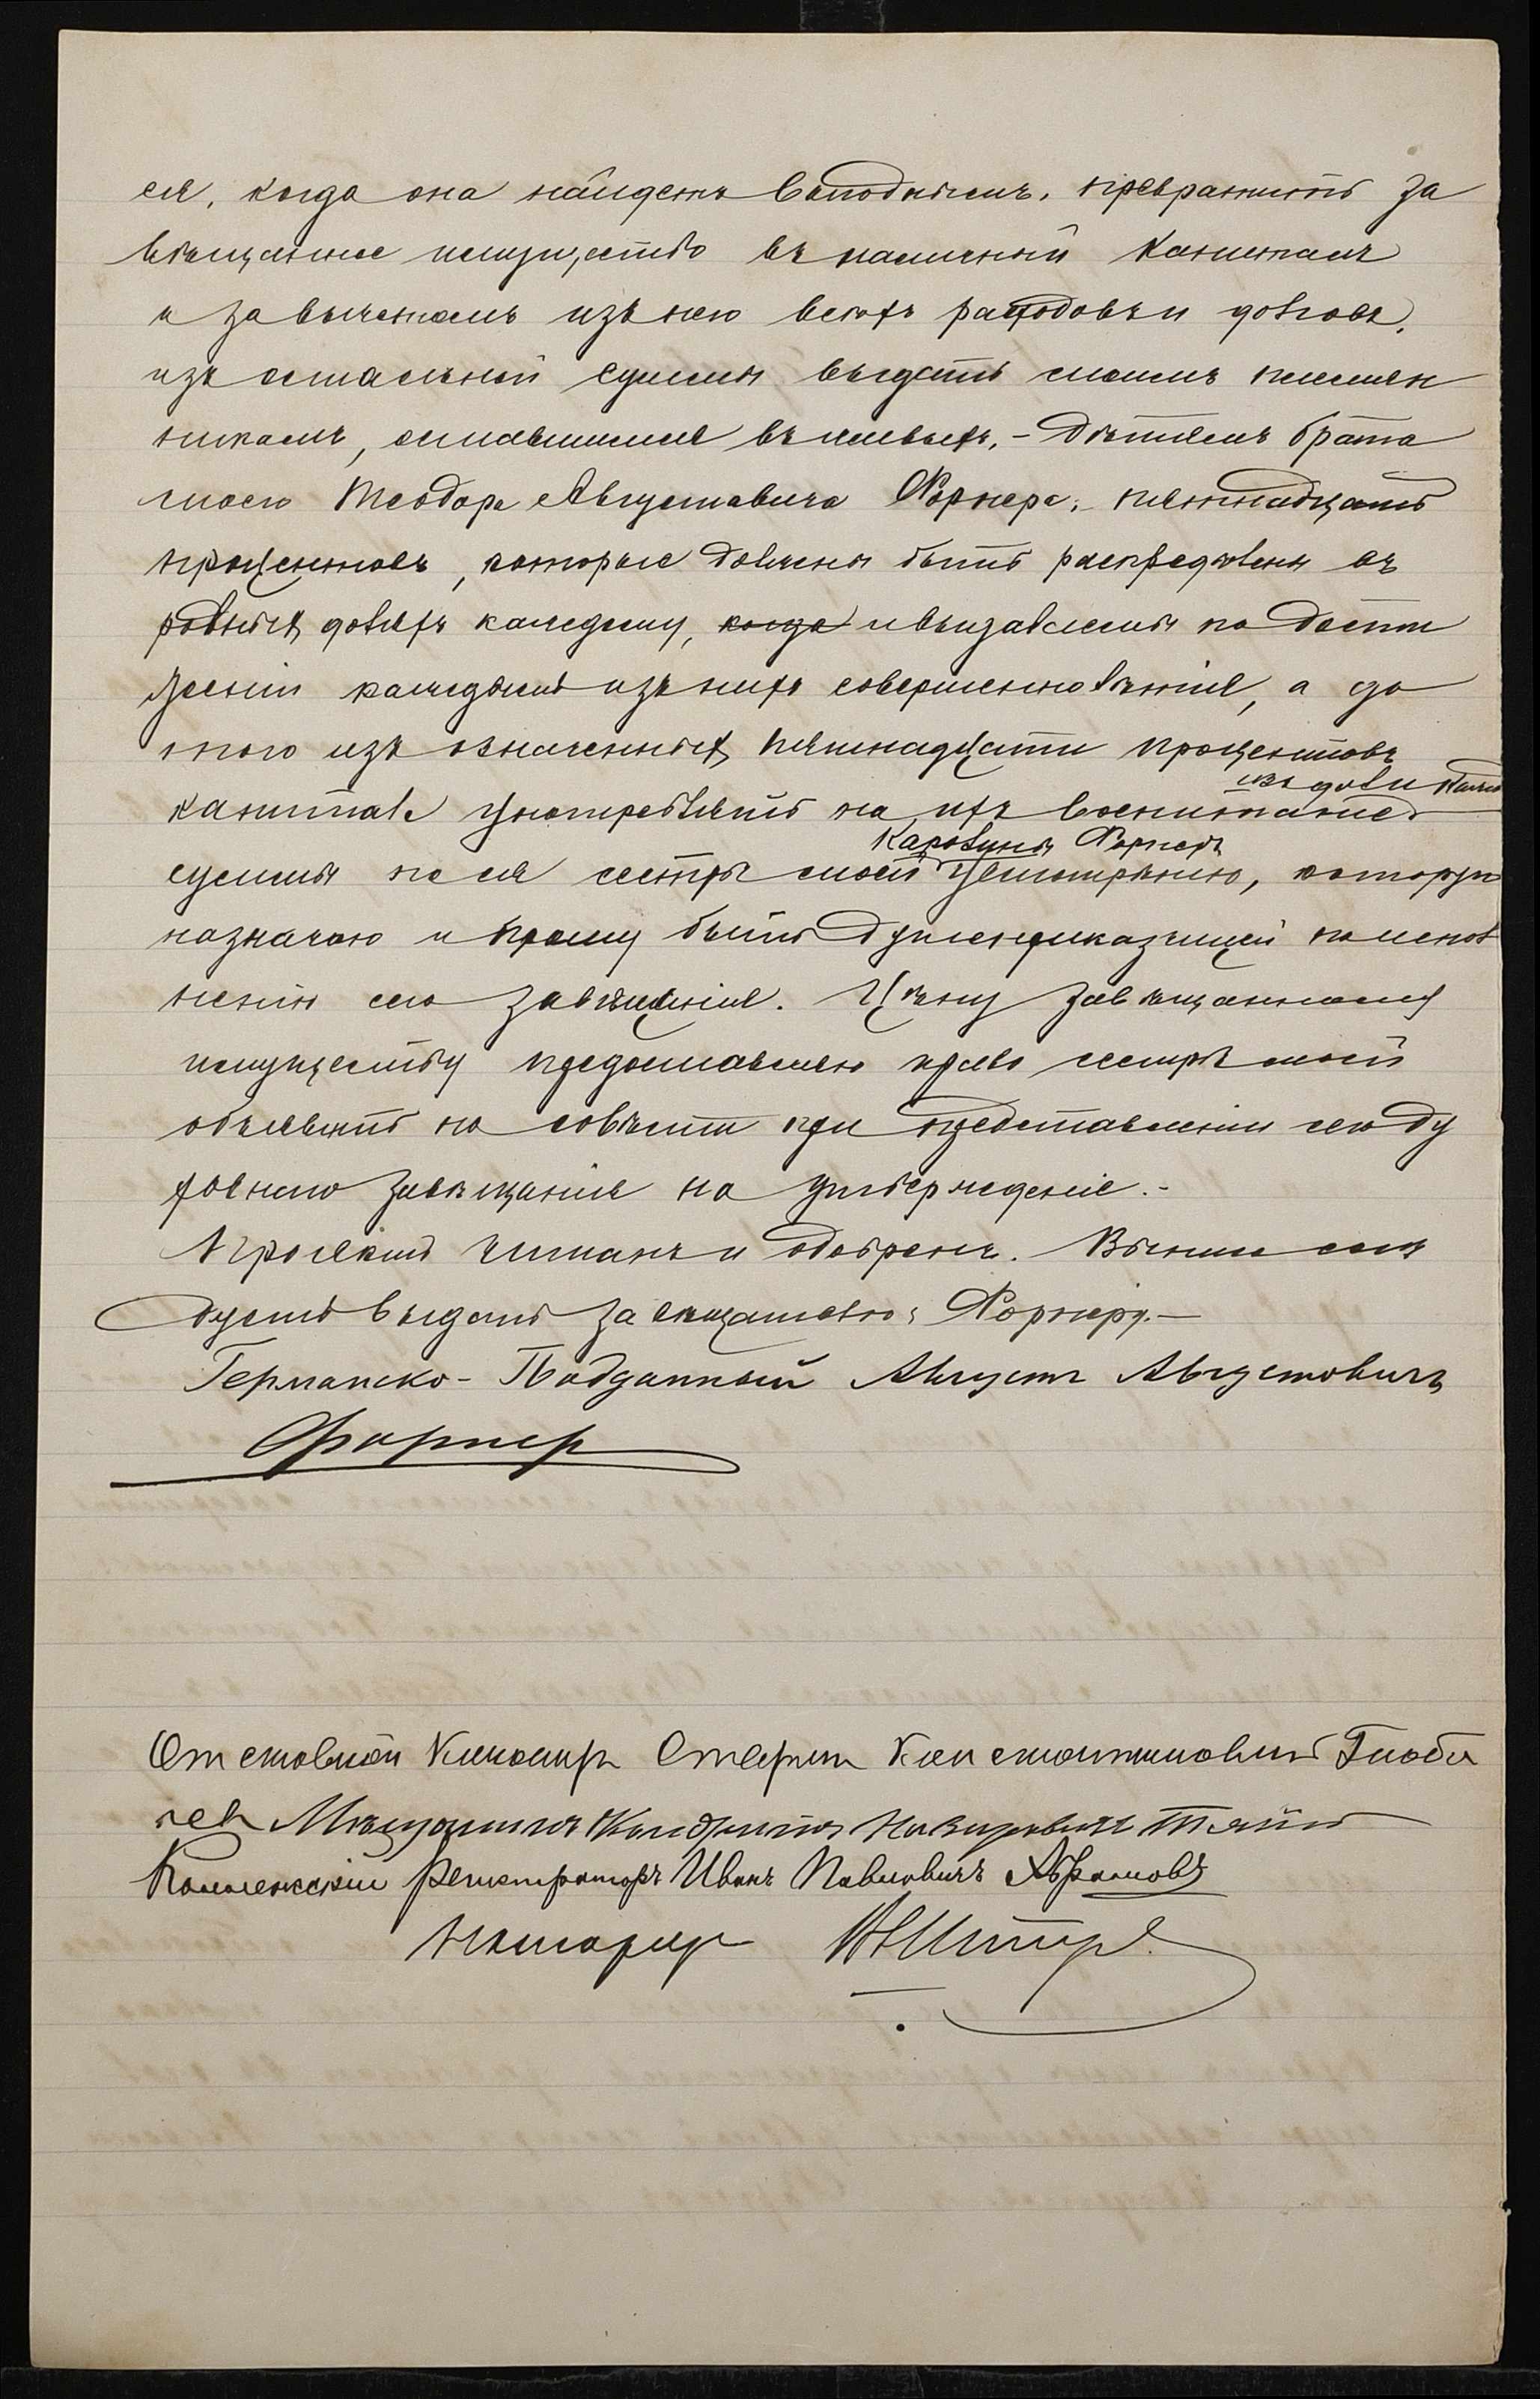 ея, когда она найдетъ выгоднымъ, превратить за
вѣщанное имущество въ наличный капиталъ
и за вычетомъ изъ него всѣхъ расходовъ и долговъ,
изъ остальной суммы выдать моимъ племян
никамъ, оставшимся въ живыхъ, - дѣтямъ брата
моего Теодора Августовича Форнера, пятнадцать
процентовъ, которые должны быть распредѣлены въ
равныхъ доляхъ каждому, когда и выдаваемы по дости
женіи каждымъ изъ нихъ совершеннолѣтія, а до
того изъ означенныхъ пятнадцати процентовъ
изъ доли
капитала употреблять на ихъ воспитаніе
Каролины Форнеръ
суммы по ея сестры моей усмотрѣнію, которую
назначаю и прошу быть душеприказчицей по испол
ненію сего завѣщанія. Цѣну завѣщанному
имуществу предоставляю право сестрѣ моей
объявить по совѣсти при представленіи сего ду
ховнаго завѣщанія на утвержденіе.-
Проектъ читанъ и одобренъ. Выпись слѣ
дуетъ выдать завѣщателю, Форнеру.-
Германско-Подданный Августъ Августовичъ
Форнер
Константиновичъ
Мѣщанинъ
Коллежскій регистраторъ Иванъ Павловичъ Абрамовъ
Нотаріусъ